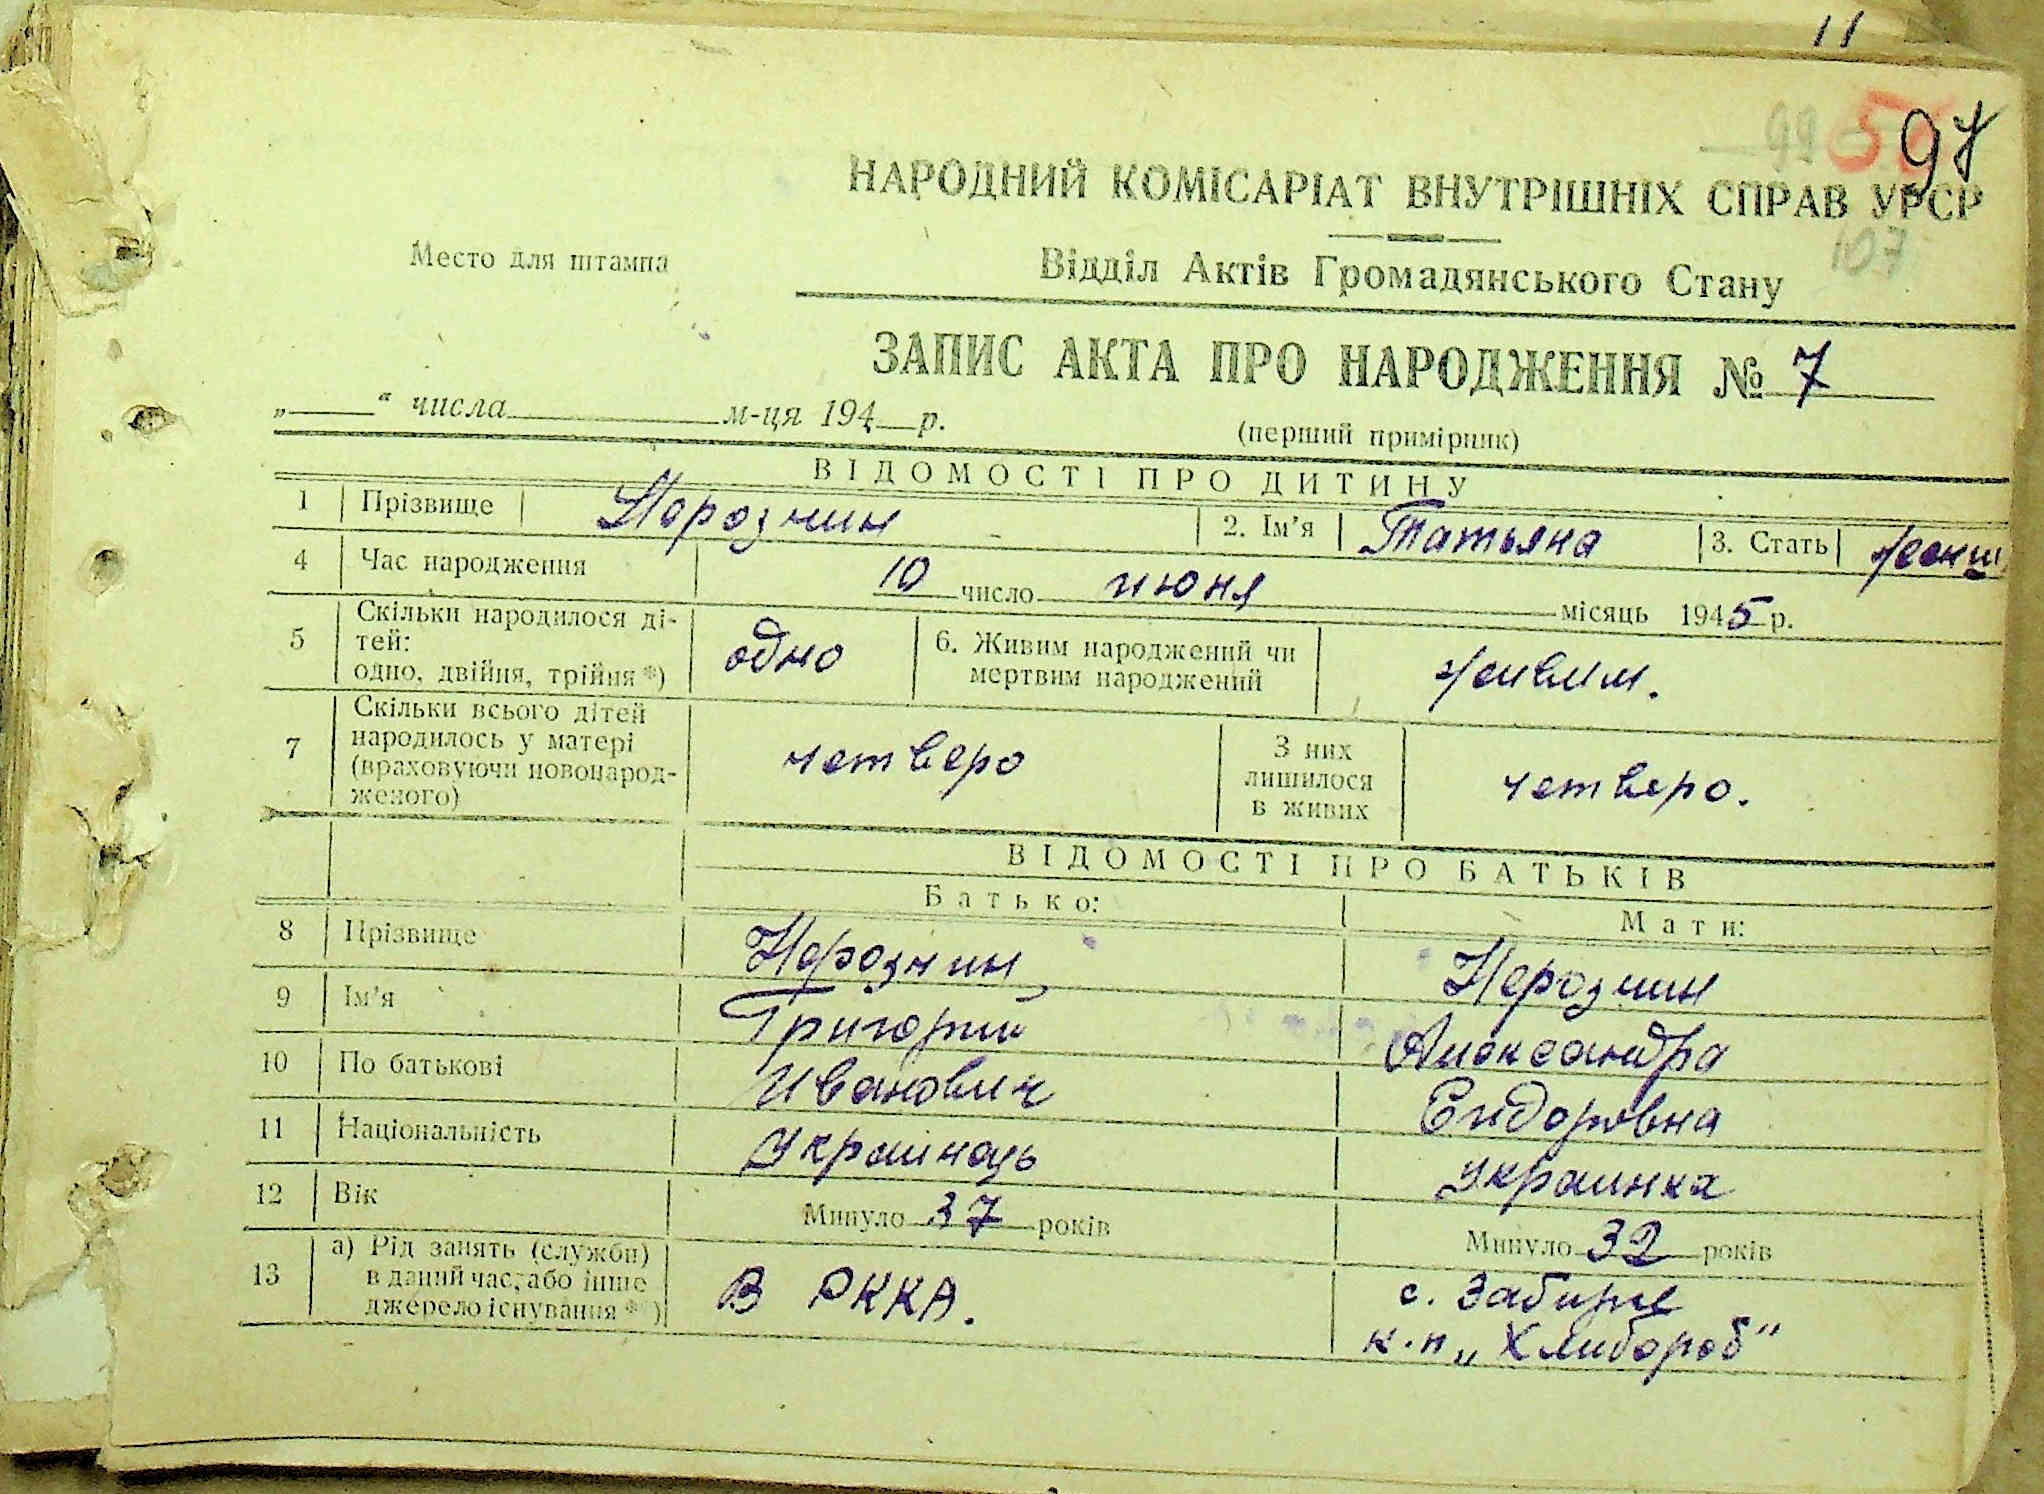 11
99 56 97
НАРОДНИЙ КОМІСАРІАТ ВНУТРІШНІХ СПРАВ УРСР
107
Место для штампа
Відділ Актів Громадянського Стану
ЗАПИС АКТА ПРО НАРОДЖЕННЯ № 7
„ “ числа м-ця 194 р.
(перший примірник)
ВІДОМОСТІ ПРО ДИТИНУ
1 Прізвище Нерозчин 2. Ім'я Татьяна 3. Стать женш
4 Час народження 10 число июня місяць 1945 р.
5 Скільки народилося ді-
тей:
одно, двійня, трійня*) одно 6. Живим народжений чи
мертвим народжений живим.
7 Скільки всього дітей
народилось у матері
(враховуючи новонарод-
женого) четверо З них
лишилося
в живих четверо.
ВІДОМОСТІ ПРО БАТЬКІВ
Батько: Мати:
8 Прізвище Нерозчин Нерозчин
9 Ім'я Григорий Александра
10 По батькові Иванович Сидоровна
11 Національність Украинець Украинка
12 Вік Минуло 37 років Минуло 32 років
13 а) Рід занять (служби)
в даний час, або інше
джерело існування*) В РККА. с. Забирье
к.п „Хлибороб“